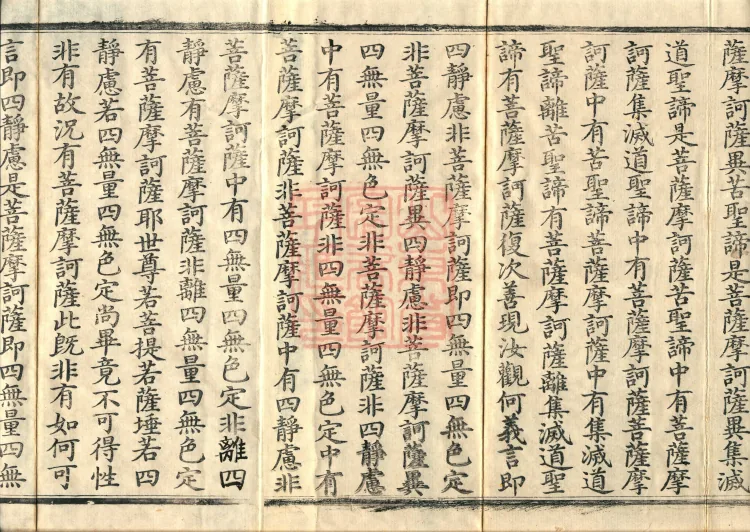 薩摩訶薩異苦聖諦是菩薩摩訶薩異集滅
道聖諦是菩薩摩訶薩苦聖諦中有菩薩摩
訶薩集滅道聖諦中有菩薩摩訶薩菩薩摩
訶薩中有苦聖諦菩薩摩訶薩中有集滅道
聖諦離苦聖諦有菩薩摩訶薩離集滅道聖
諦有菩薩摩訶薩復次善現汝觀何義言即
四靜慮非菩薩摩訶薩即四無量四無色定
非菩薩摩訶薩異四靜慮非菩薩摩訶薩異
四無量四無色定非菩薩摩訶薩非四靜慮
中有菩薩摩訶薩非四無量四無色定中有
菩薩摩訶薩非菩薩摩訶薩中有四靜慮非
菩薩摩訶薩中有四無量四無色定非離四
靜慮有菩薩摩訶薩非離四無量四無色定
有菩薩摩訶薩耶世尊若菩提若薩埵若四
靜慮若四無量四無色定尚畢竟不可得性
非有故況有菩薩摩訶薩此既非有如何可
言即四靜慮是菩薩摩訶薩即四無量四無